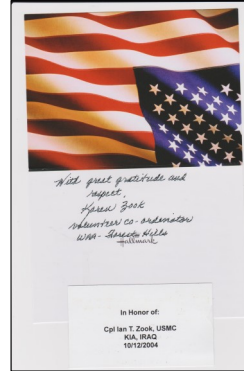 With great gratitude and
respect,
Karen Zook
volunteer co-ordinator
WAA - Forests Hills
Hallmark
In Honor of:
Cpl Ian T. Zook, USMC
KIA, IRAQ
10/12/2004